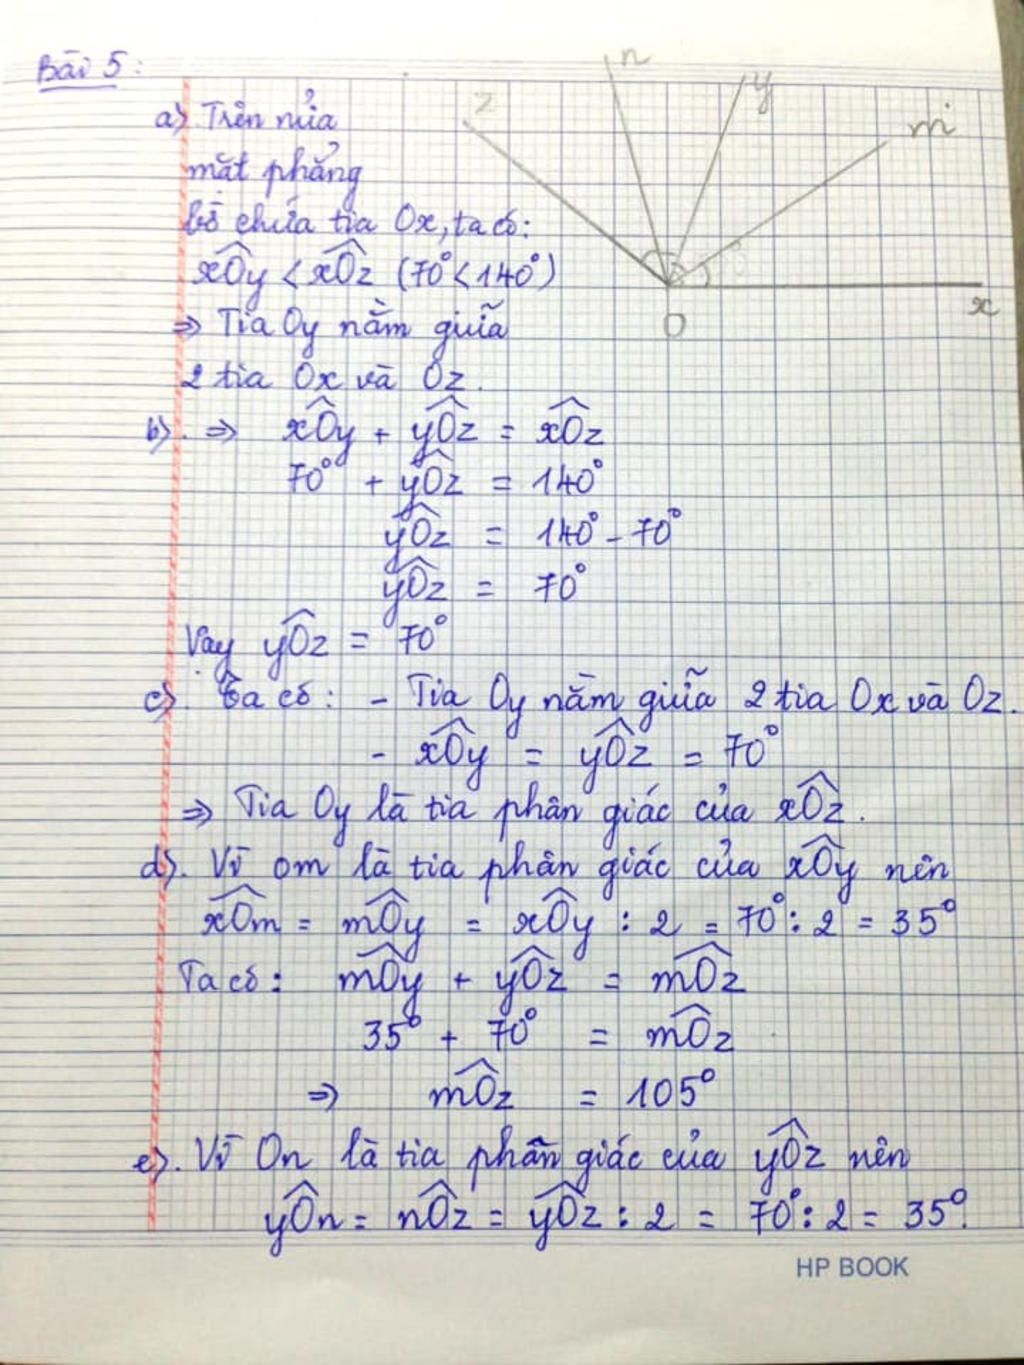 Bài 5:
n
y
z
m
a) Trên nửa
mặt phẳng
bờ chứa tia Ox, ta có:
xÔy < xÔz (70° < 140°)
x
O
=> Tia Oy nằm giữa
2 tia Ox và Oz.
b). => xÔy + yÔz = xÔz
70° + yÔz = 140°
yÔz = 140° - 70°
yÔz = 70°
Vậy yÔz = 70°
c). Ta có: - Tia Oy nằm giữa 2 tia Ox và Oz.
- xÔy = yÔz = 70°
=> Tia Oy là tia phân giác của xÔz.
d). Vì om là tia phân giác của xÔy nên
xÔm = mÔy = xÔy : 2 = 70° : 2 = 35°
Ta có: mÔy + yÔz = mÔz
35° + 70° = mÔz
=> mÔz = 105°
e). Vì On là tia phân giác của yÔz nên
yÔn = nÔz = yÔz : 2 = 70° : 2 = 35°.
HP BOOK